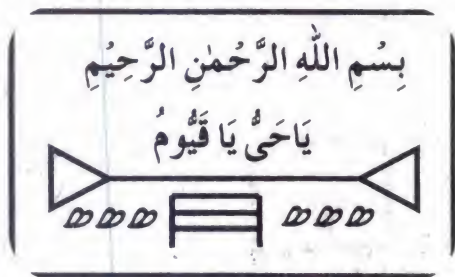 بِسْمِ اللهِ الرَّحْمٰنِ الرَّحِيْمِ
يَاحَىُّ يَا قَيُّومُ